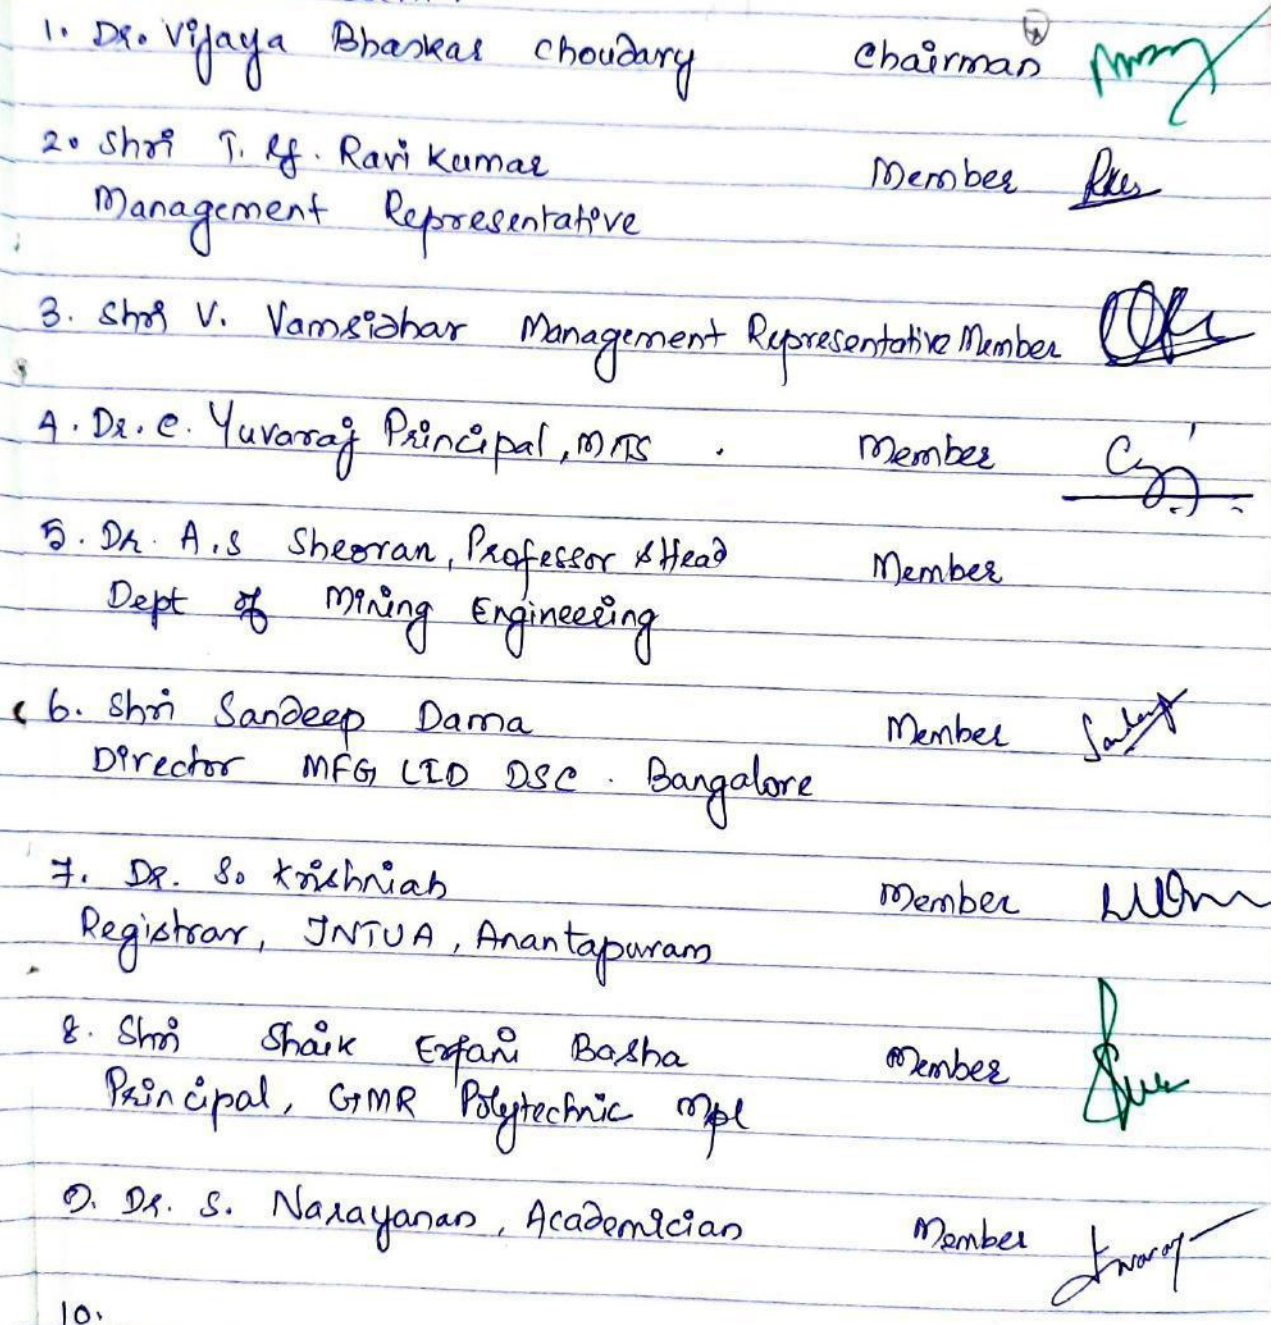 1. Dr. Vijaya Bhaskar Choudary Chairman
2. Shri T. Ravi Kumar Member
Management Representative
3. Shri V. Vamsidhar Management Representative Member
4. Dr. C. Yuvaraj Principal, MITS. Member
5. Dr. A.S Sheoran, Professor & Head Member
Dept of Mining Engineering
6. Shri Sandeep Dama Member
Director MFG LTD DSC. Bangalore
7. Dr. S. Krishniah Member
Registrar, JNTUA, Anantapuram
8. Shri Shaik Erfani Basha Member
Principal, GMR Polytechnic Mpl
9. Dr. S. Narayanan, Academician Member
10.